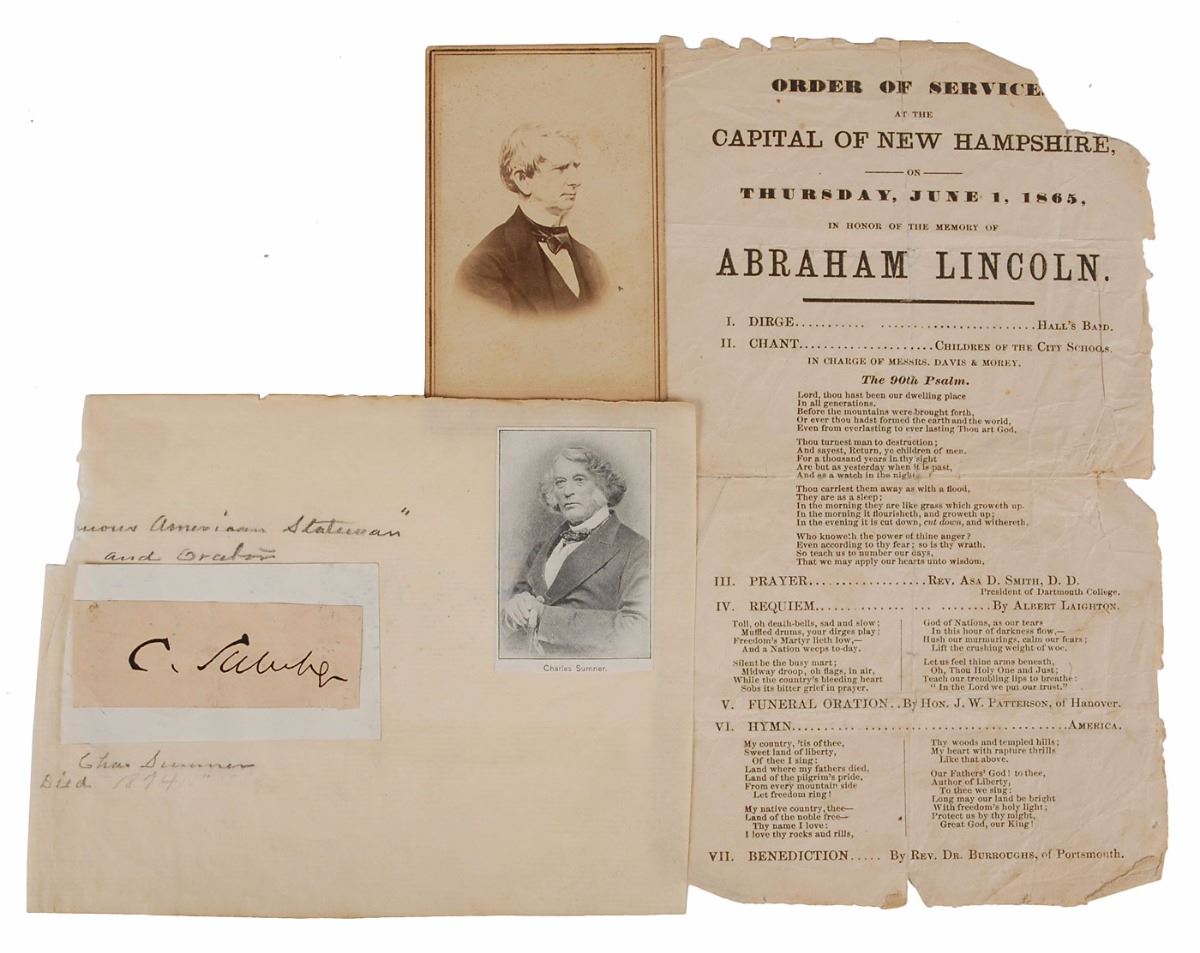 ORDER OF SERVICE
AT THE
CAPITAL OF NEW HAMPSHIRE,
ON
THURSDAY, JUNE 1, 1865,
IN HONOR OF THE MEMORY OF
ABRAHAM LINCOLN.
I. DIRGE........... .......................HALL'S BAND.
II. CHANT.....................CHILDREN OF THE CITY SCHOOLS.
IN CHARGE OF MESSRS. DAVIS & MOREY.
The 90th Psalm.
Lord, thou hast been our dwelling place
In all generations.
Before the mountains were brought forth,
Or ever thou hadst formed the earth and the world,
Even from everlasting to ever lasting Thou art God.
Thou turnest man to destruction;
And sayest, Return, ye children of men.
For a thousand years in thy sight
Are but as yesterday when it is past,
And as a watch in the night.
Thou carriest them away as with a flood,
They are as a sleep;
In the morning they are like grass which groweth up.
In the morning it flourisheth, and groweth up;
In the evening it is cut down, cut down, and withereth.
Who knoweth the power of thine anger?
Even according to thy fear; so is thy wrath.
So teach us to number our days,
That we may apply our hearts unto wisdom.
III. PRAYER..................REV. ASA D. SMITH, D. D.
President of Dartmouth College.
IV. REQUIEM............... .. ........By ALBERT LAIGHTON.
Toll, oh death-bells, sad and slow;
Muffled drums, your dirges play;
Freedom's Martyr lieth low,—
And a Nation weeps to-day.
Silent be the busy mart;
Midway droop, oh flags, in air,
While the country's bleeding heart
Sobs its bitter grief in prayer.
God of Nations, as our tears
In this hour of darkness flow,—
Hush our murmurings, calm our fears;
Lift the crushing weight of woe.
Let us feel thine arms beneath,
Oh, Thou Holy One and Just;
Teach our trembling lips to breathe:
"In the Lord we put our trust."
V. FUNERAL ORATION..By HON. J. W. PATTERSON, of Hanover.
VI. HYMN........................................AMERICA.
My country, 'tis of thee,
Sweet land of liberty,
Of thee I sing:
Land where my fathers died,
Land of the pilgrim's pride,
From every mountain side
Let freedom ring!
My native country, thee—
Land of the noble free—
Thy name I love:
I love thy rocks and rills,
Thy woods and templed hills;
My heart with rapture thrills
Like that above.
Our Fathers' God! to thee,
Author of Liberty,
To thee we sing:
Long may our land be bright
With freedom's holy light;
Protect us by thy might,
Great God, our King!
VII. BENEDICTION..... By REV. DR. BURROUGHS, of Portsmouth.
American Statesman"
and Orator
Charles Sumner.
C. Sumner
Chas Sumner
Died 1874